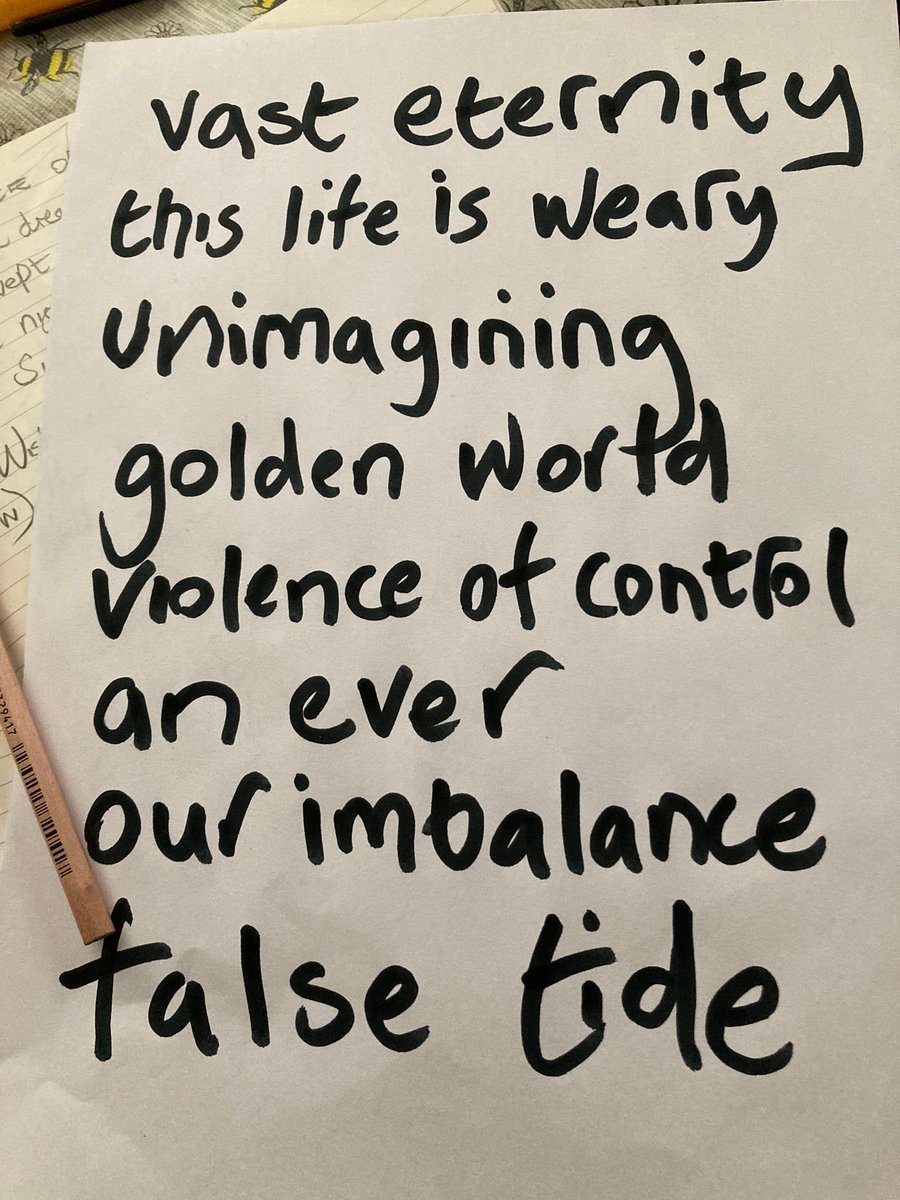 vast eternity
this life is weary
unimagining
golden world
violence of control
an ever
our imbalance
false tide